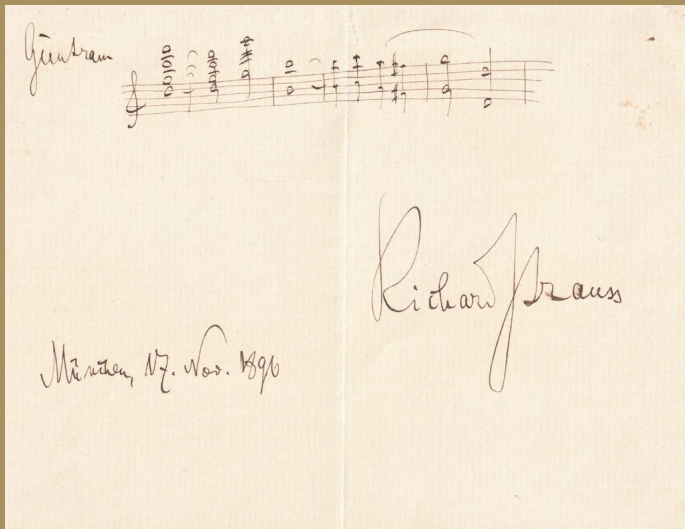 Guntram
Richard Strauss
München, 17. Nov. 1896